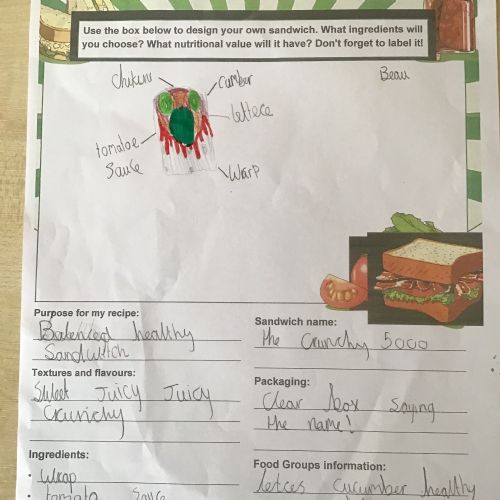 Use the box below to design your own sandwich. What ingredients will
you choose? What nutritional value will it have? Don't forget to label it!
Beau
chikun
cumber
lettece
tomatoe
sauce
Wrap
Purpose for my recipe:
Balenced healthy
Sandwitch
Sandwich name:
the Crunchy 5000
Textures and flavours:
Sweet Juicy Juicy
Crunchy
Packaging:
Clear box saying
the name!
Ingredients:
• Wrap
• tomato sauce
Food Groups information:
letces cucumber healthy